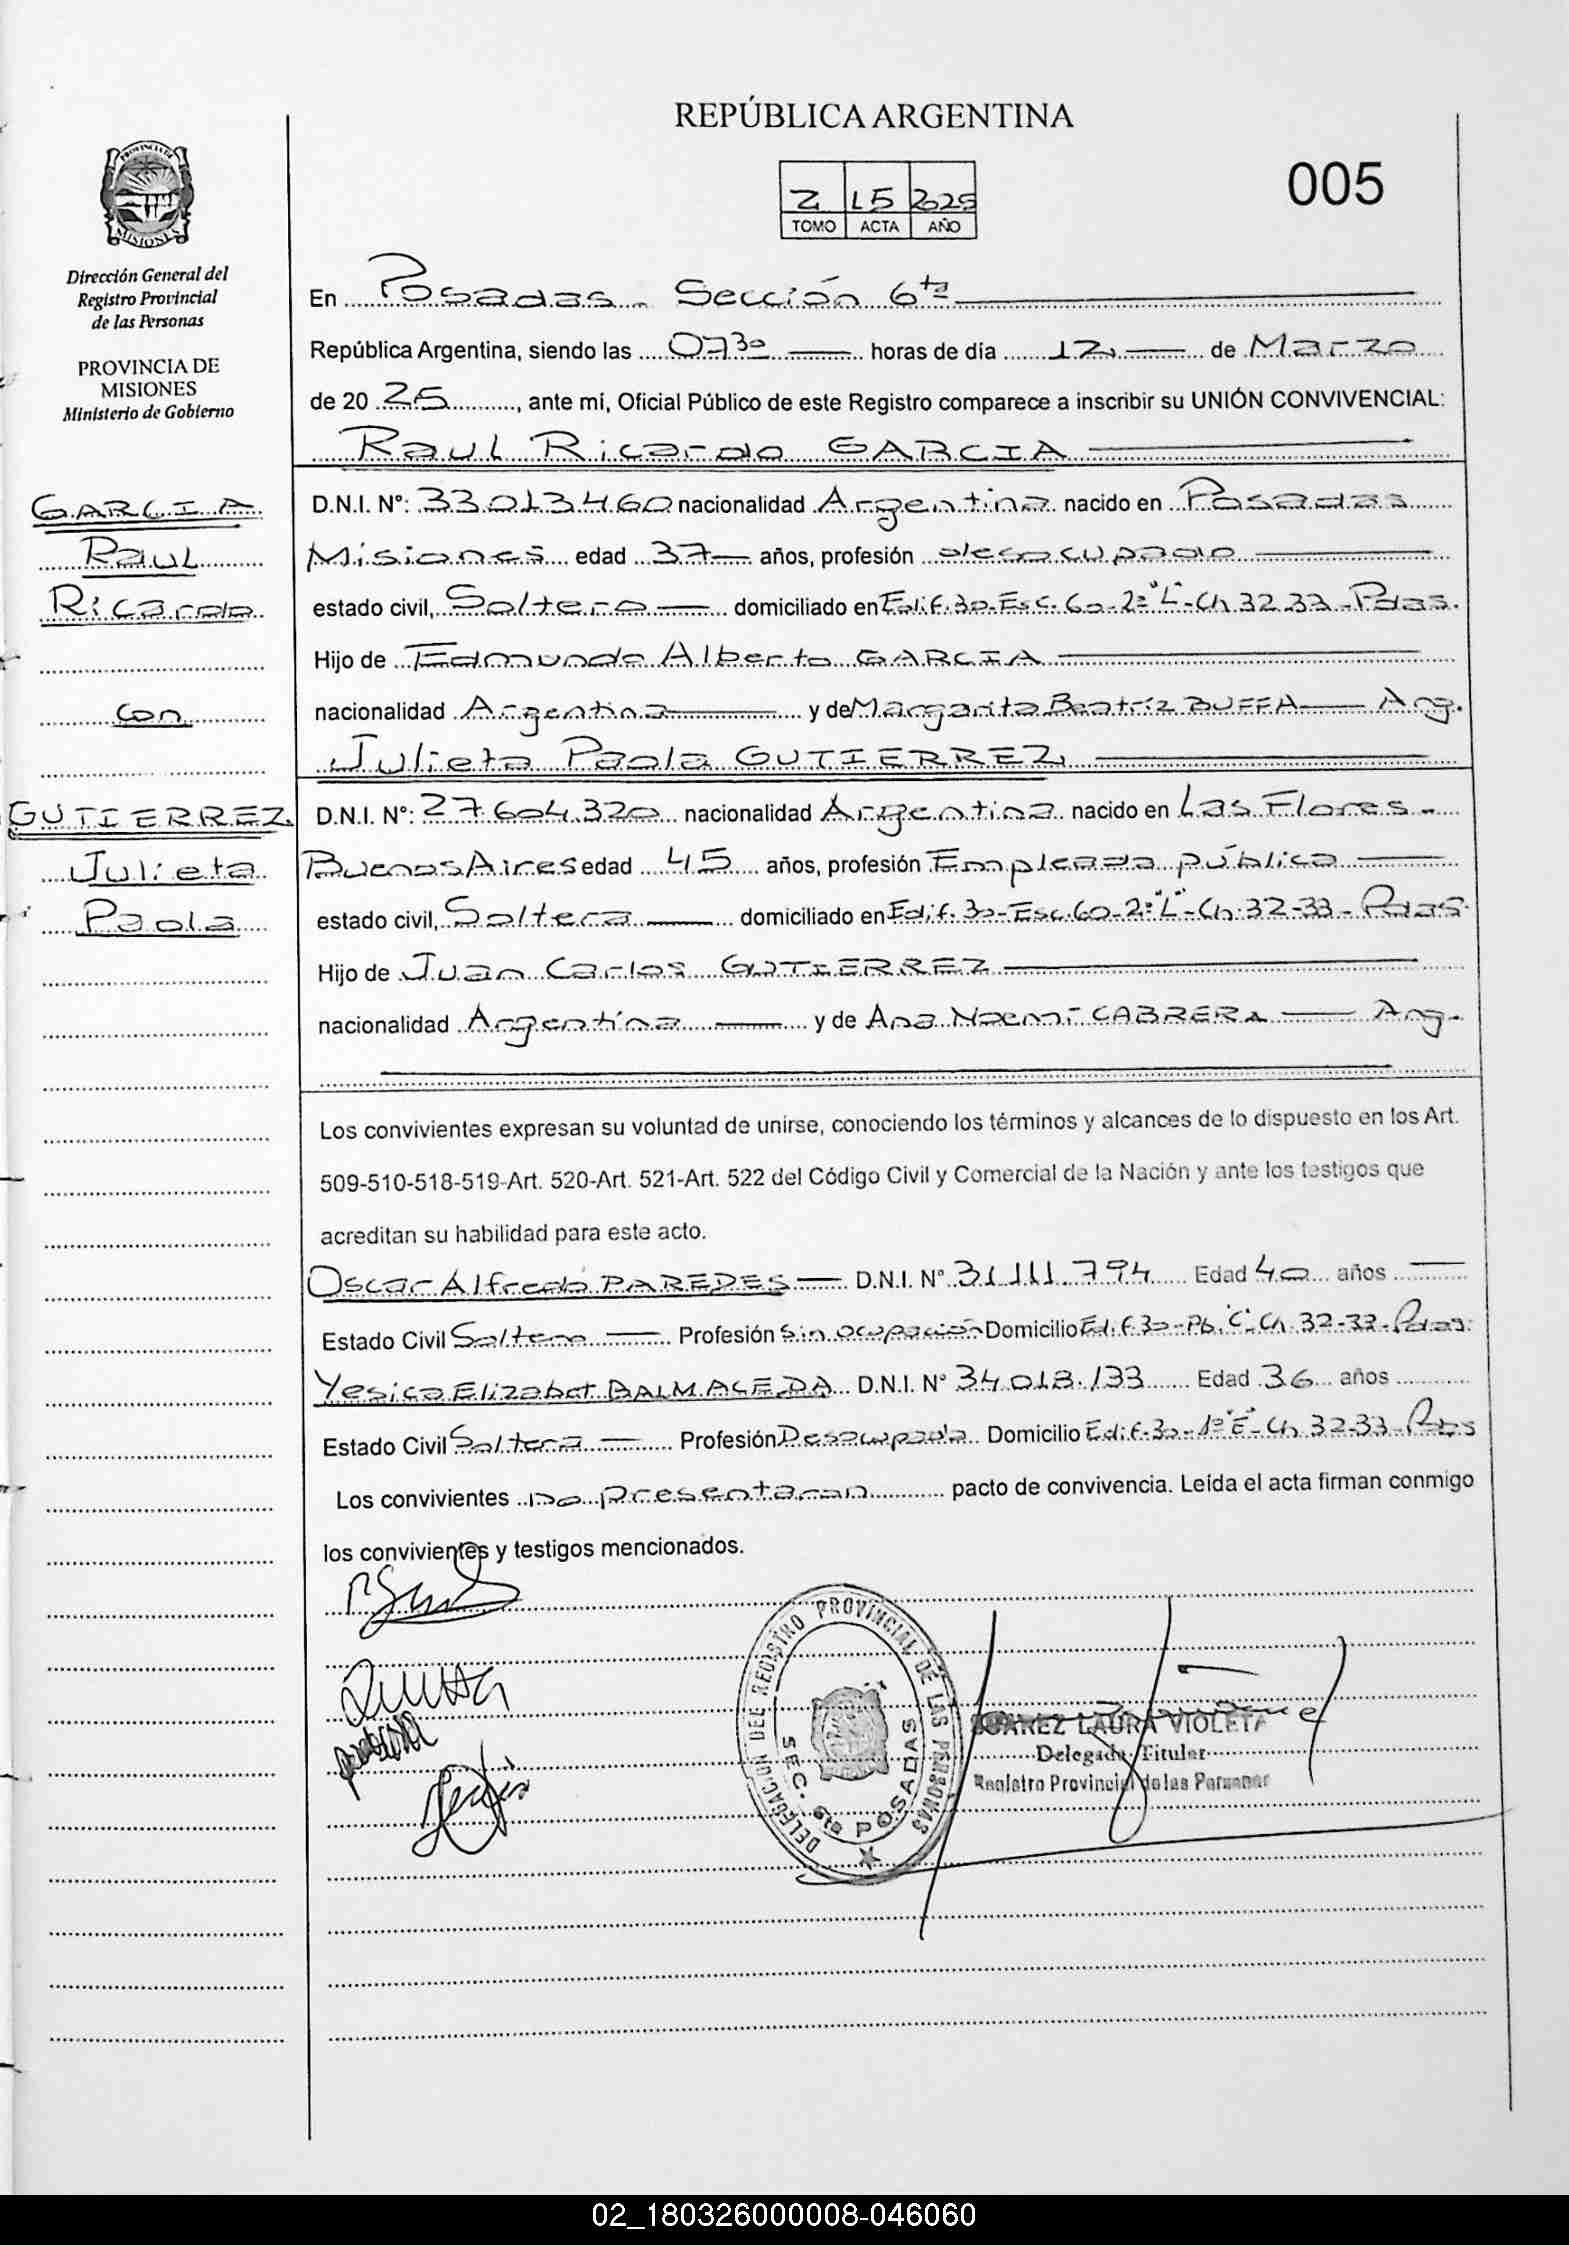 REPÚBLICA ARGENTINA
005
2 15 2025
TOMO ACTA AÑO
PROVINCIA DE
MISIONES
Dirección General del
Registro Provincial
de las Personas
PROVINCIA DE
MISIONES
Ministerio de Gobierno
GARCIA
Raul
Ricardo
con
GUTIERREZ
Julieta
Paola
En Posadas - Sección 6ta
República Argentina, siendo las 07 30 horas de día 12 de Marzo
de 20 25, ante mí, Oficial Público de este Registro comparece a inscribir su UNIÓN CONVIVENCIAL:
Raul Ricardo GARCIA
D.N.I. N°: 33.013.460 nacionalidad Argentina nacido en Posadas
Misiones edad 37 años, profesión desocupado
estado civil, Soltero domiciliado en Edif. 30-Esc. 60-2° "L"-Ch 32.33-Pdas.
Hijo de Edmundo Alberto GARCIA
nacionalidad Argentina y de Margarita Beatríz BUFFA Arg.
Julieta Paola GUTIERREZ
D.N.I. N°: 27.604.320 nacionalidad Argentina nacido en Las Flores -
Buenos Aires edad 45 años, profesión Empleada pública
estado civil, Soltera domiciliado en Edif. 30-Esc. 60-2° "L"-Ch. 32-33-Pdas.
Hijo de Juan Carlos GUTIERREZ
nacionalidad Argentina y de Ana Noemí CABRERA Arg.
Los convivientes expresan su voluntad de unirse, conociendo los términos y alcances de lo dispuesto en los Art.
509-510-518-519-Art. 520-Art. 521-Art. 522 del Código Civil y Comercial de la Nación y ante los testigos que
acreditan su habilidad para este acto.
Oscar Alfredo PAREDES D.N.I. N° 31.111.794 Edad 40 años
Estado Civil Soltero Profesión Sin ocupación Domicilio Edif. 30-Pb. "C"-Ch 32-33-Pdas.
Yesica Elizabet BALMACEDA D.N.I. N° 34.018.133 Edad 36 años
Estado Civil Soltera Profesión Desocupada Domicilio Edif. 30-1° "E"-Ch 32-33-Pdas
Los convivientes no presentaran pacto de convivencia. Leída el acta firman conmigo
los convivientes y testigos mencionados.
DELEGACION DEL REGISTRO PROVINCIAL DE LAS PERSONAS
SEC. 6ta POSADAS
SUAREZ LAURA VIOLETA
Delegada Titular
Registro Provincial de las Personas
02_180326000008-046060